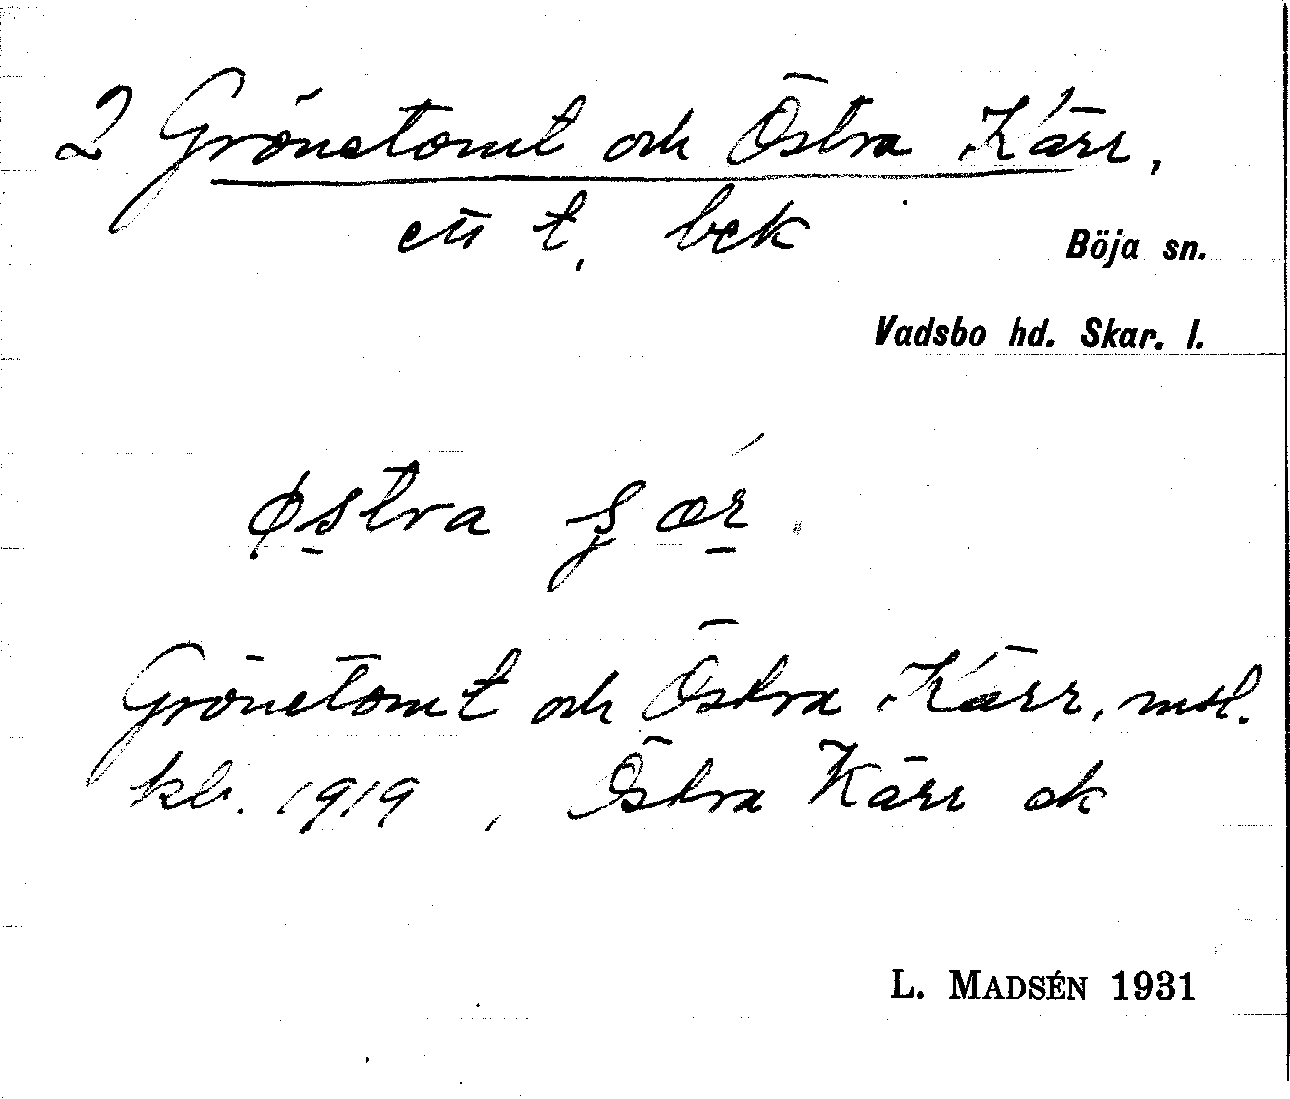 2 Grönetomt och Östra Kärr,
ett t, bek
Böja sn.
Vadsbo hd. Skar. l.
østra
Grönetomt och Östra Kärr, mtl.
kbr. 1919, Östra Kärr ok
L. MADSÉN 1931